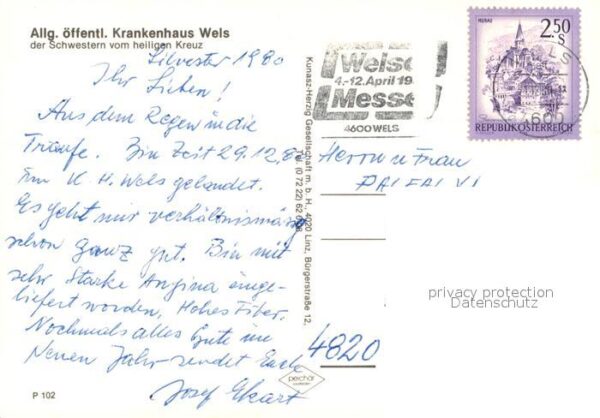 Allg. öffentl. Krankenhaus Wels
der Schwestern vom heiligen Kreuz
Silvester 1980
Ihr Lieben!
Aus dem Regen in die
Traufe. Bin Zeit 29.12.80
Im K. H. Wels gelandet.
Es geht mir verhältnismäßig
schon ganz gut. Bin mit
sehr Starke Angina einge-
liefert worden, Hohes Fiber.
Nochmals alles Gute im
Neuen Jahr sendet Euch
Josef
P 102
Kunasz-Herzig Gesellschaft m. b. H., 4020 Linz, Bürgerstraße 12,
Tel. (0 72 22) 62
Welser
4.-12. April 19
Messe
4600 WELS
MURAU
2.50
S
REPUBLIK ÖSTERREICH
WELS
4600
Herrn u Frau
privacy protection
Datenschutz
4820